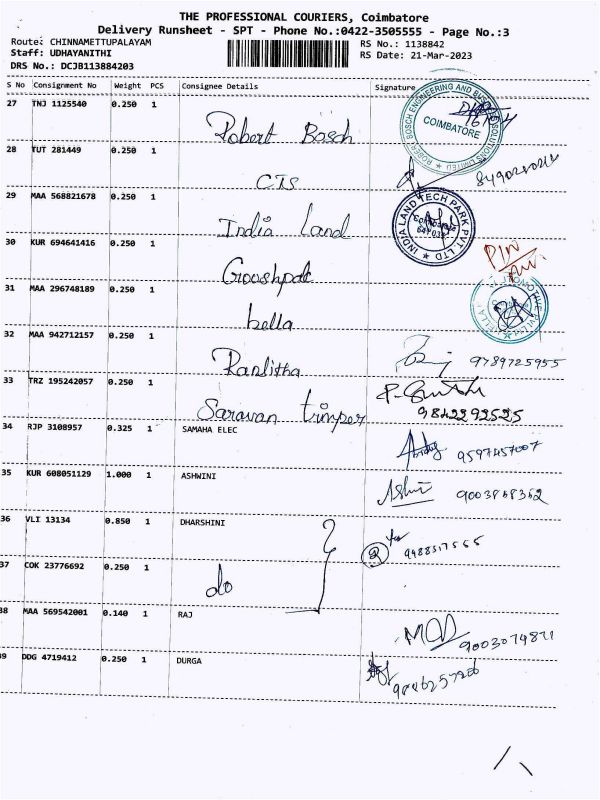 THE PROFESSIONAL COURIERS, Coimbatore
Delivery Runsheet - SPT - Phone No.:0422-3505555 - Page No.:3
Route: CHINNAMETTUPALAYAM
Staff: UDHAYANITHI
DRS No.: DCJB113884203
RS No.: 1138842
RS Date: 21-Mar-2023
S No Consignment No Weight PCS Consignee Details Signature
27 TNJ 1125540 0.250 1 Robert Bosch
ROBERT BOSCH ENGINEERING AND BUSINESS SOLUTIONS LIMITED
COIMBATORE
28 TUT 281449 0.250 1 CTS
29 MAA 568821678 0.250 1 India Land
INDIA LAND TECH PARK PVT. LTD
30 KUR 694641416 0.250 1
31 MAA 296748189 0.250 1 hella
32 MAA 942712157 0.250 1 9789725955
33 TRZ 195242057 0.250 1 Saravan timper 9842292525
34 RJP 3108957 0.325 1 SAMAHA ELEC 9597457007
35 KUR 608051129 1.000 1 ASHWINI
36 VLI 13134 0.850 1 DHARSHINI
37 COK 23776692 0.250 1 do
38 MAA 569542001 0.140 1 RAJ
39 DDG 4719412 0.250 1 DURGA